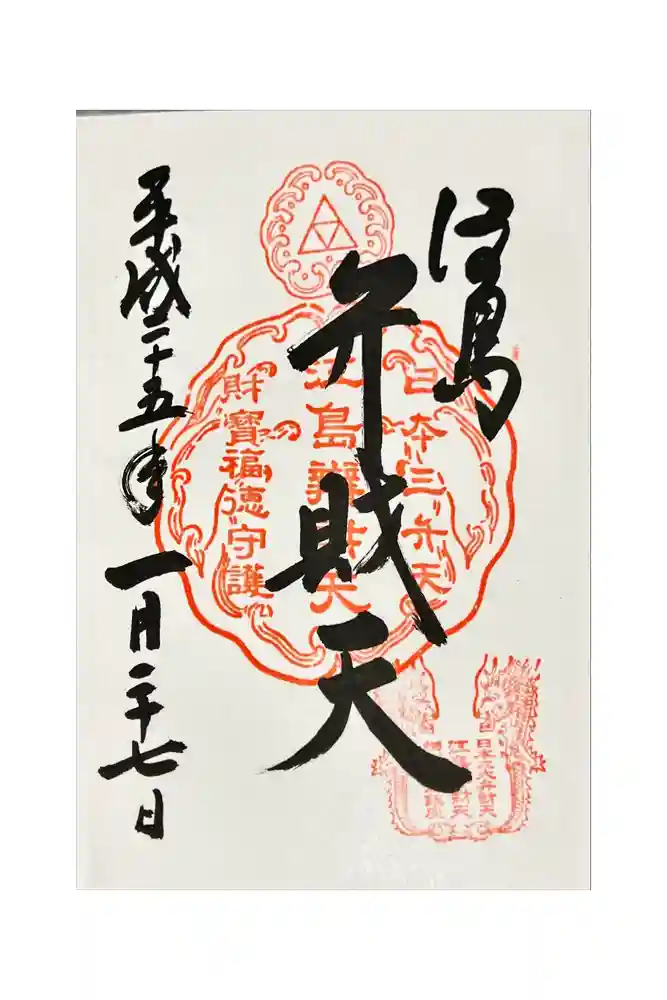 江島
弁財天
平成二十五年一月二十七日
日本三弁天
江島辨財天
財寶福徳守護
日本三大弁財天